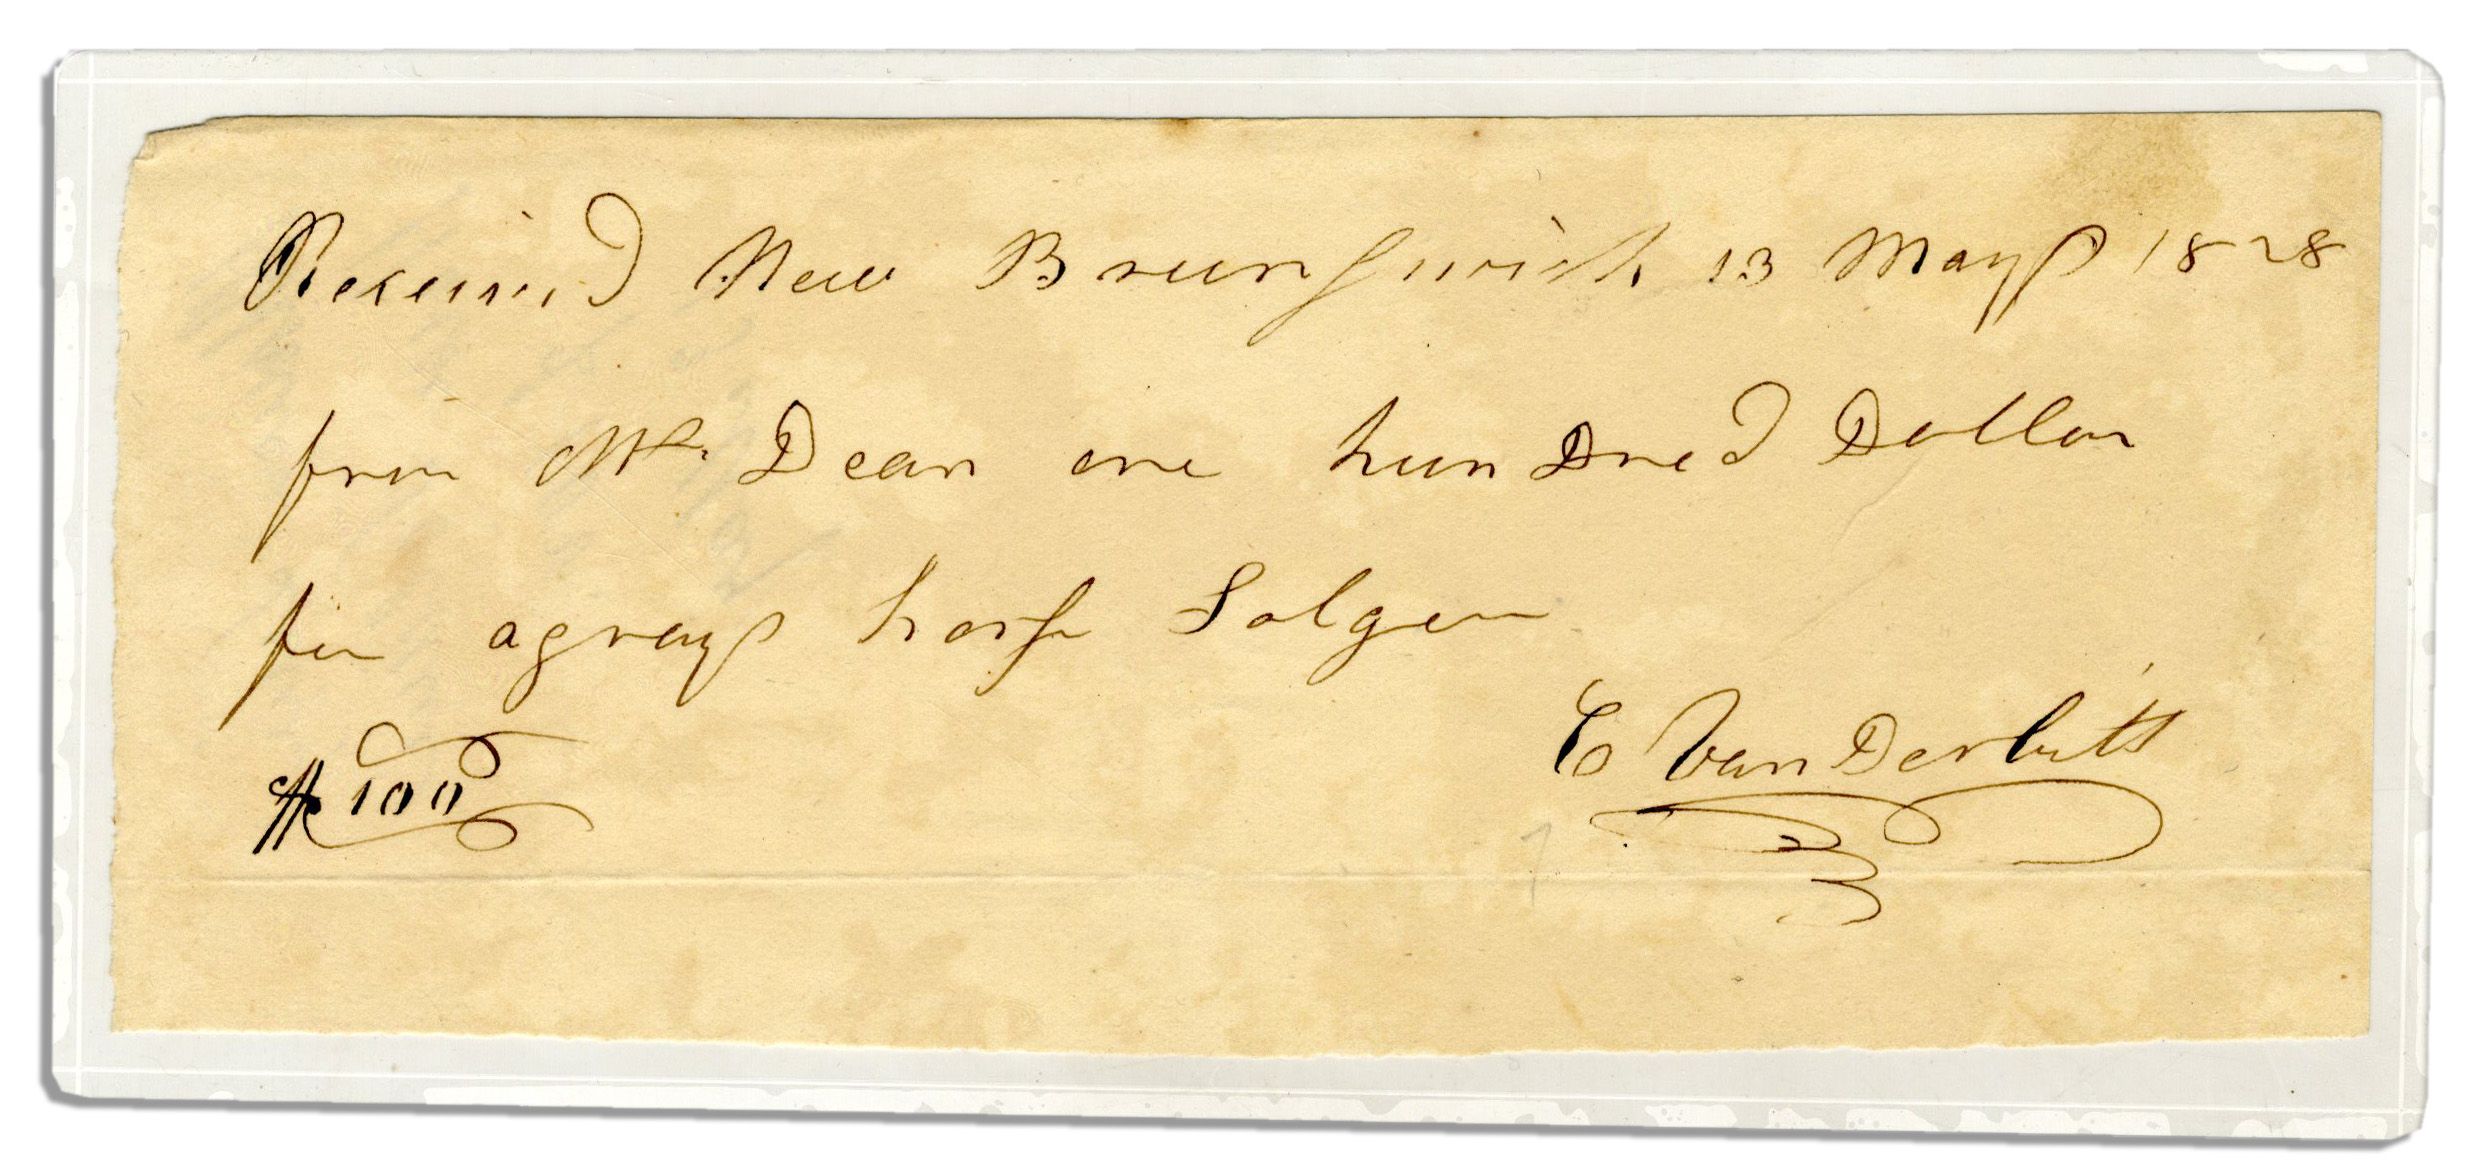 Received New Brunswick 13 May 1828
from Mr. Dean one hundred Dollar
for a gray horse
$100
C Van Derbilt